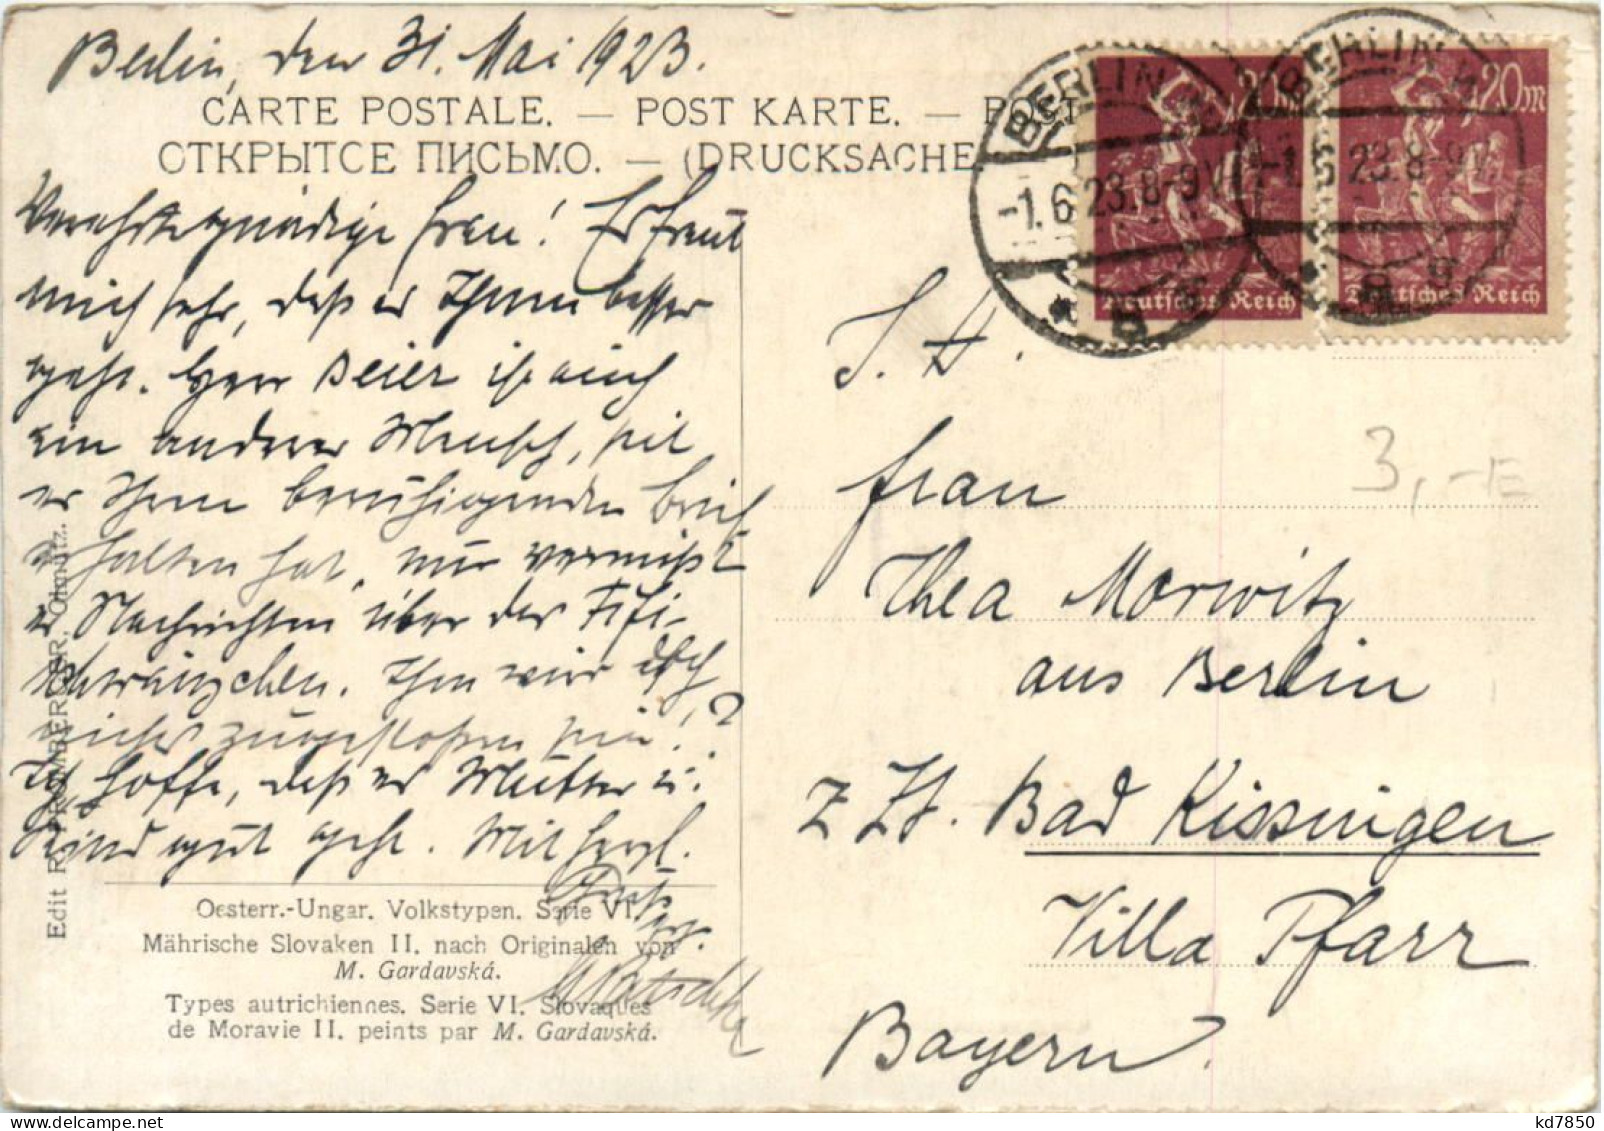 Berlin, den 31. Mai 1923.
CARTE POSTALE. — POST KARTE. — POST
ОТКРЫТСЕ ПИСЬМО. — (DRUCKSACHE
Verehrte gnädige Frau! Es freut
mich sehr, daß es Ihnen besser
geht. Herr Beier ist auch
ein anderer Mensch, seit
er Ihren beruhigenden Brief
erhalten hat, nur vermißt
er Nachrichten über das Fifi-
schwänzchen. Ihm wird doch
nichts zugestoßen sein!?
Ich hoffe, daß es Mutter u.
Kind gut geht. Mit herzl.
Oesterr.-Ungar. Volkstypen. Serie VI.
Mährische Slovaken II. nach Originalen von
M. Gardavská.
Types autrichiennes. Serie VI. Slovaques
de Moravie II. peints par M. Gardavská.
Edit R. PROMBERGER, Olmütz.
BERLIN
-1.6.23.8-9V
BERLIN
-1.6.23.8-9V
20m
Deutsches Reich
Deutsches Reich
I. H.
3,-E
Frau
Thea Morwitz
aus Berlin
z Zt. Bad Kissingen
Villa Pfarr
Bayern.
kd7850